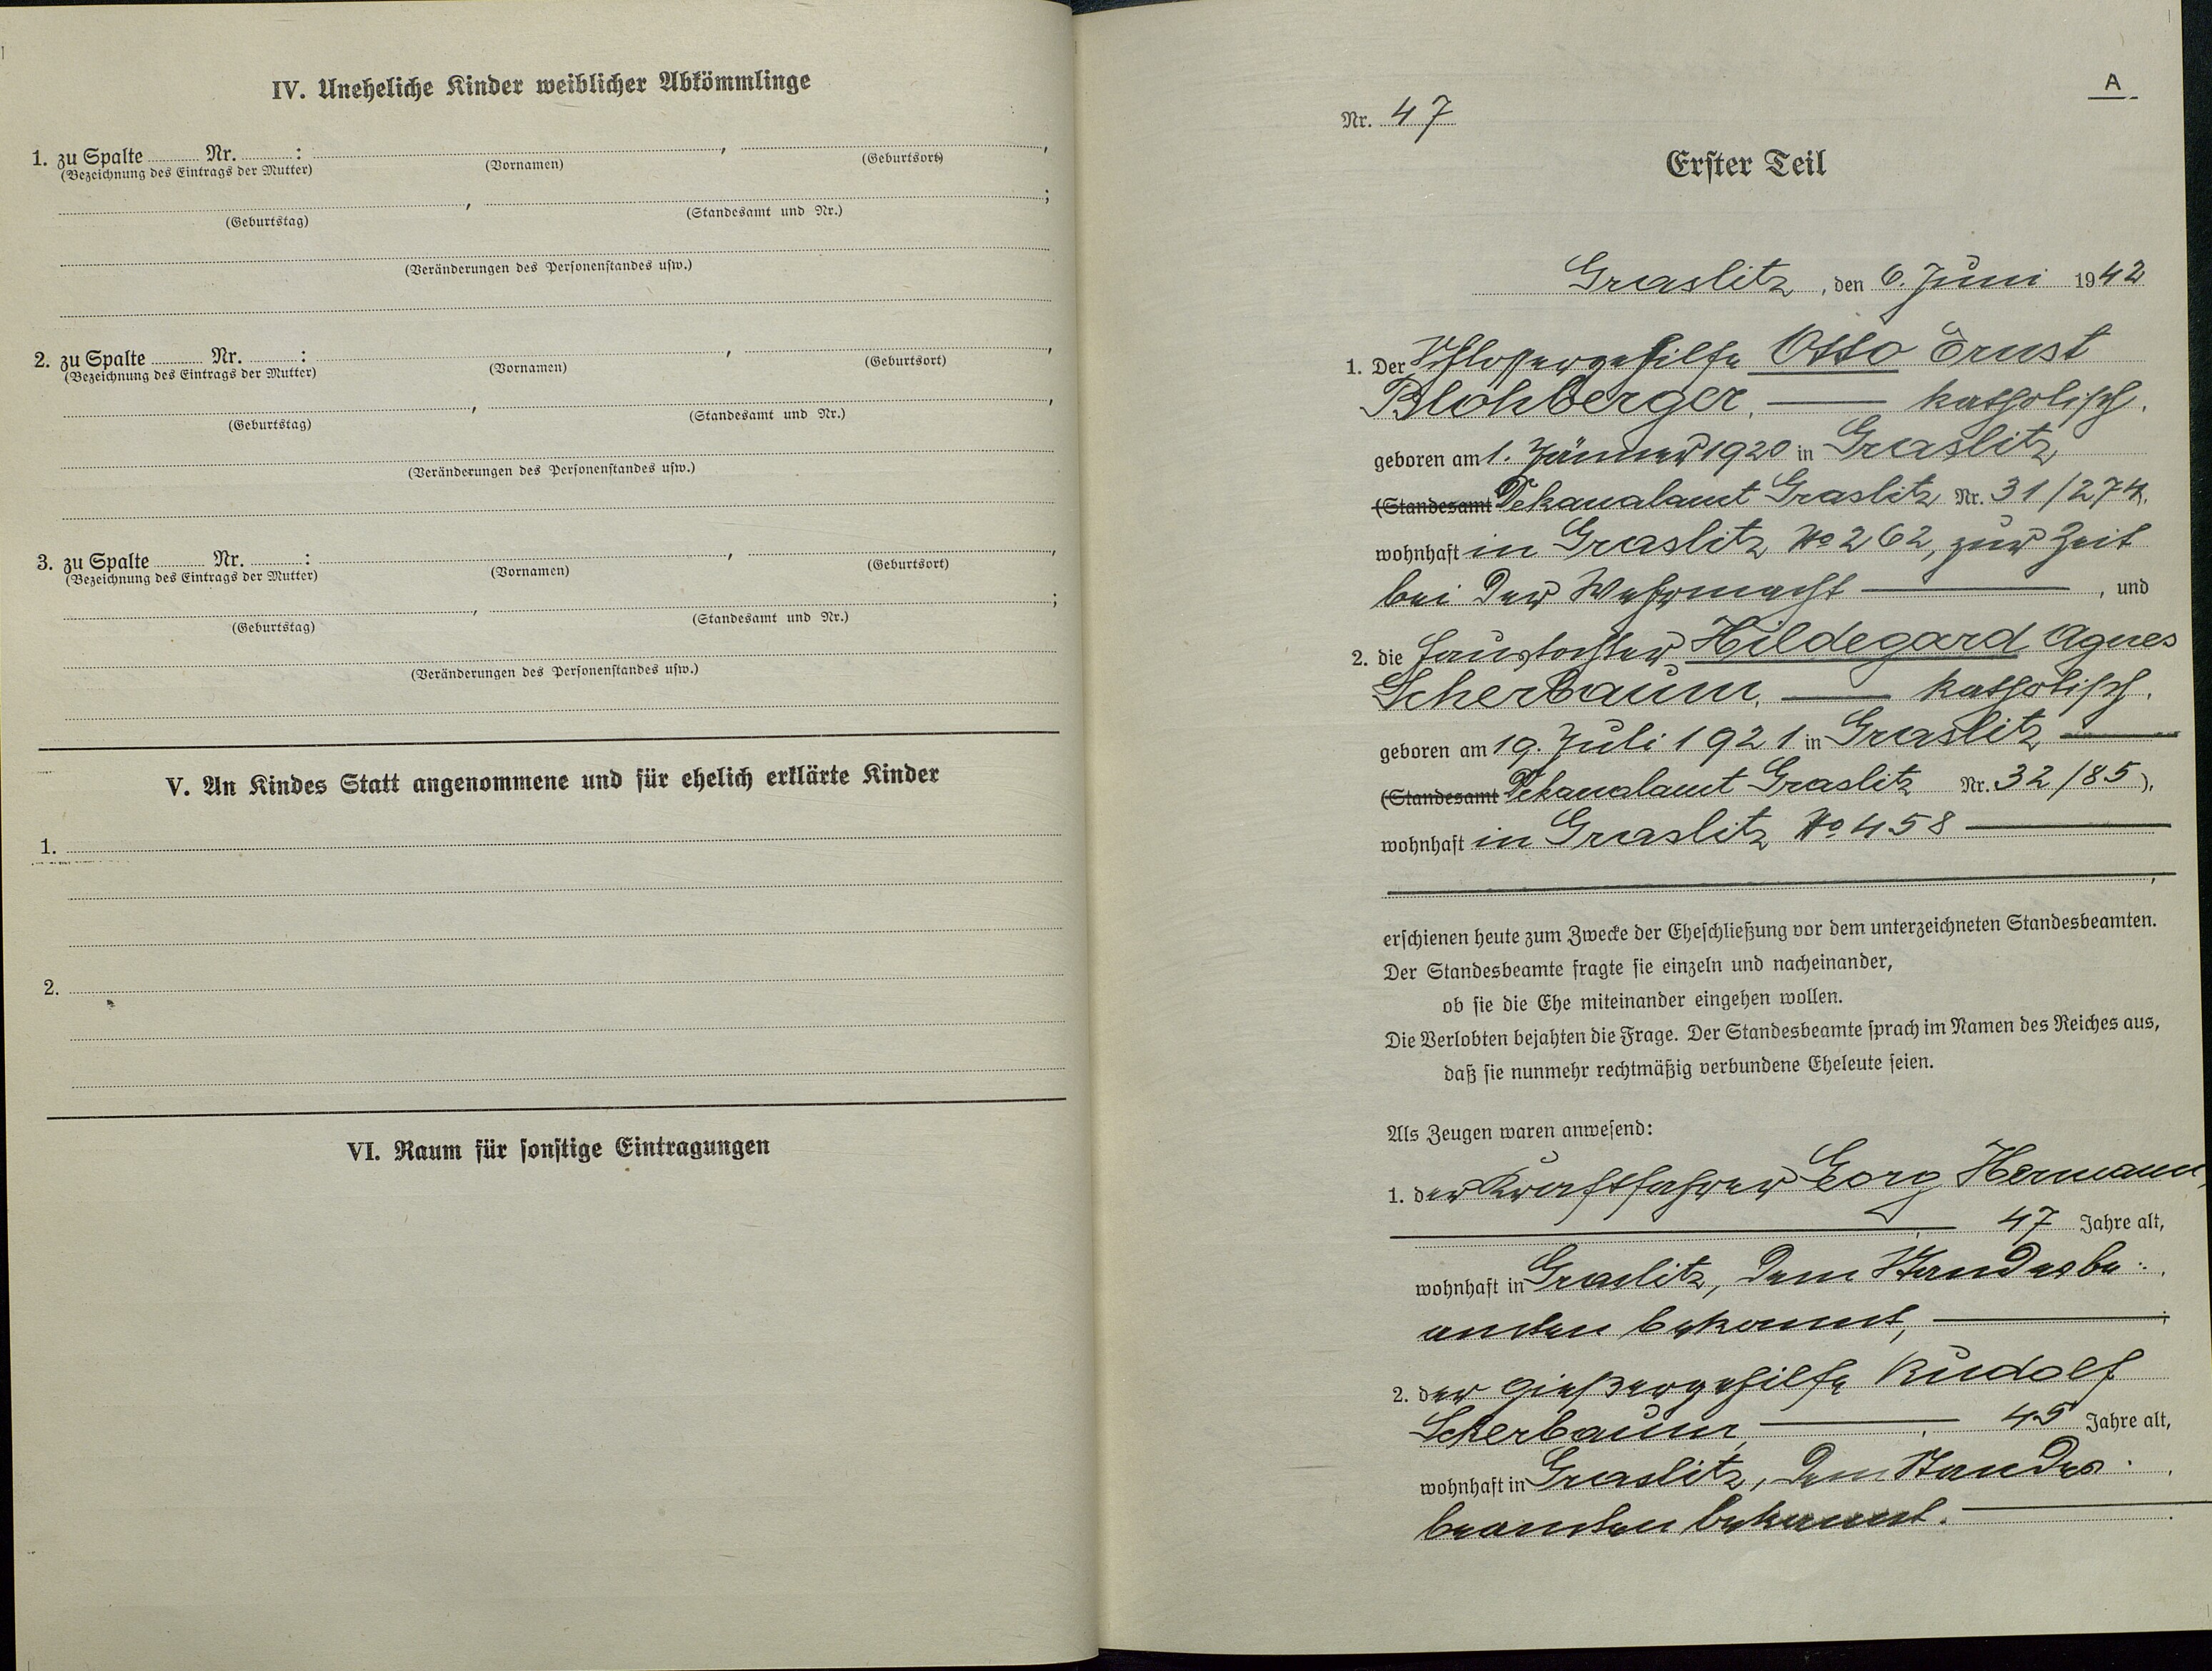 IV. Uneheliche Kinder weiblicher Abkömmlinge
1. zu Spalte Nr. : , ,
(Bezeichnung des Eintrags der Mutter) (Vornamen) (Geburtsort)
, ;
(Geburtstag) (Standesamt und Nr.)
(Veränderungen des Personenstandes usw.)
2. zu Spalte Nr. : , ,
(Bezeichnung des Eintrags der Mutter) (Vornamen) (Geburtsort)
, ,
(Geburtstag) (Standesamt und Nr.)
(Veränderungen des Personenstandes usw.)
3. zu Spalte Nr. : , ,
(Bezeichnung des Eintrags der Mutter) (Vornamen) (Geburtsort)
, ;
(Geburtstag) (Standesamt und Nr.)
(Veränderungen des Personenstandes usw.)
V. An Kindes Statt angenommene und für ehelich erklärte Kinder
1.
2.
VI. Raum für sonstige Eintragungen
A
Nr. 47
Erster Teil
Graslitz, den 6. Juni 1942
1. Der Schlossergehilfe Otto Ernst
Blohberger, — katholisch,
geboren am 1. Jänner 1920 in Graslitz
(Standesamt Dekanalamt Graslitz Nr. 31/274,
wohnhaft in Graslitz No 262, zur Zeit
bei der Wehrmacht —, und
2. die Haustochter Hildegard Agnes
Scherbaum, — katholisch,
geboren am 19. Juli 1921 in Graslitz —
(Standesamt Dekanalamt Graslitz Nr. 32/85),
wohnhaft in Graslitz No 458 —
,
erschienen heute zum Zwecke der Eheschließung vor dem unterzeichneten Standesbeamten.
Der Standesbeamte fragte sie einzeln und nacheinander,
ob sie die Ehe miteinander eingehen wollen.
Die Verlobten bejahten die Frage. Der Standesbeamte sprach im Namen des Reiches aus,
daß sie nunmehr rechtmäßig verbundene Eheleute seien.
Als Zeugen waren anwesend:
1. der Kraftfahrer Georg Hermann,
— , 47 Jahre alt,
wohnhaft in Graslitz, dem Standesbe-
amten bekannt, — ;
2. der Gießergehilfe Rudolf
Scherbaum, — , 45 Jahre alt,
wohnhaft in Graslitz, dem Standes-
beamten bekannt. —